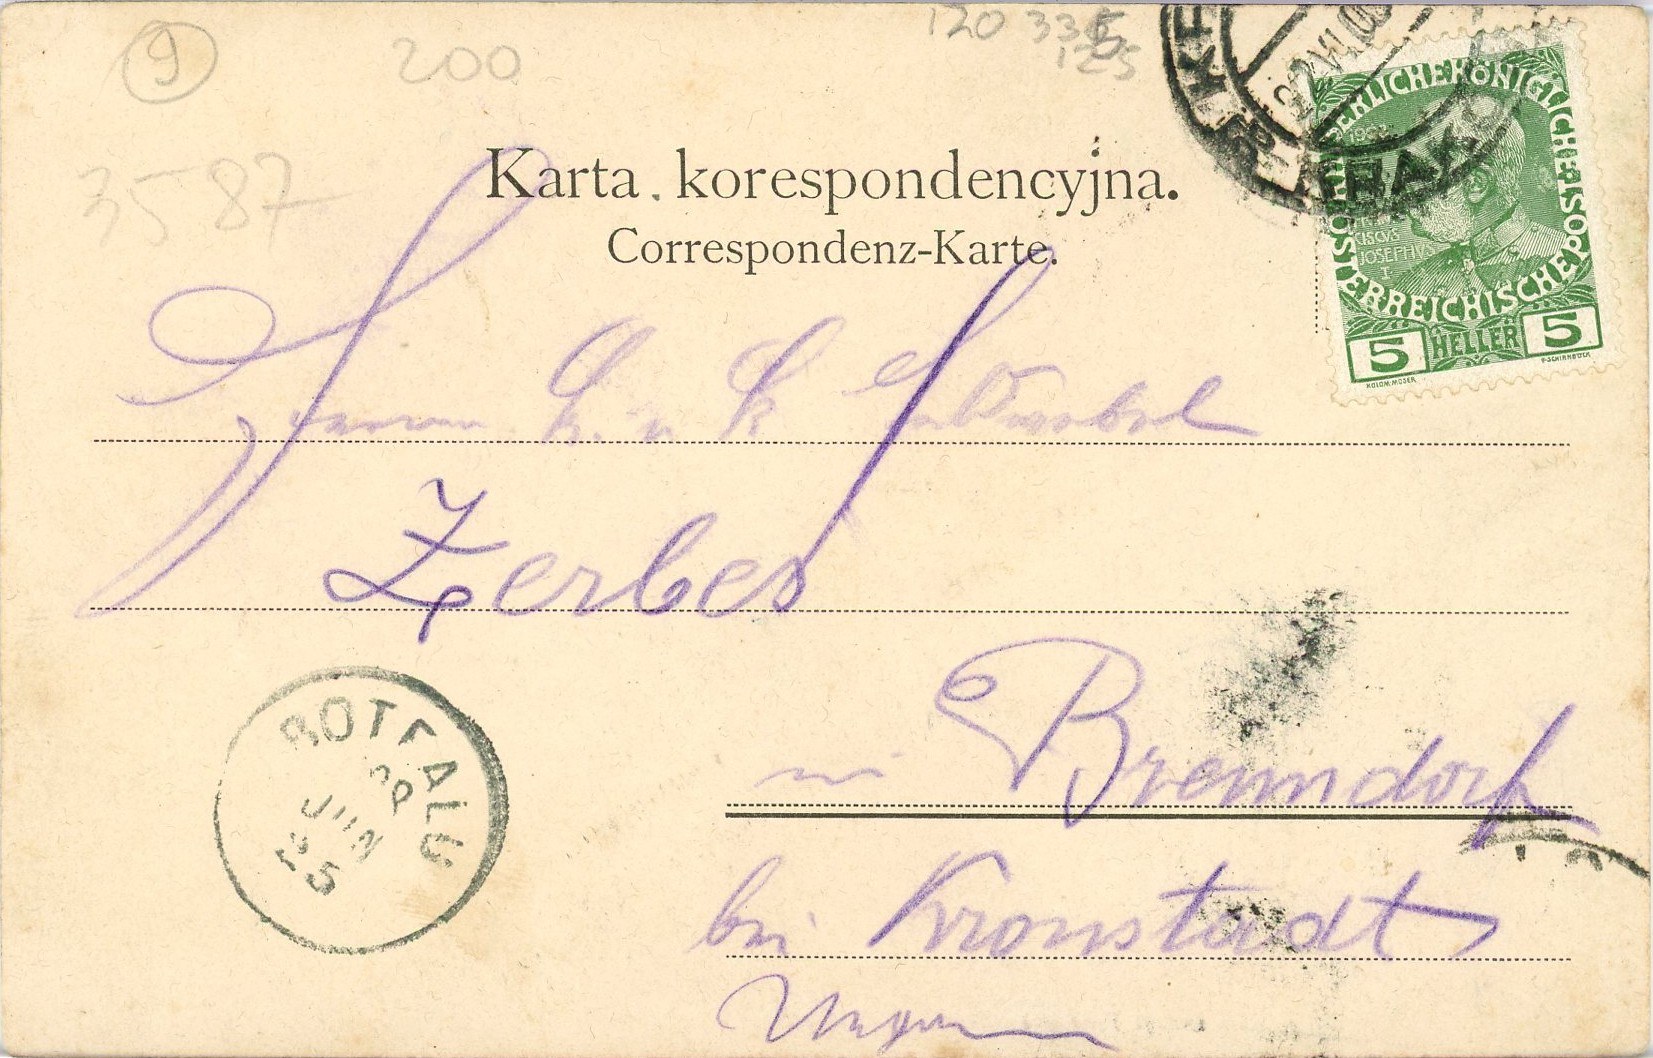 9
200
120 335
125
3587
Karta korespondencyjna.
Correspondenz-Karte.
KAISERLICHE KÖNIGLICHE ÖSTERREICHISCHE POST
1908
JOSEPHVS
I
5 HELLER 5
KOLOM·MOSER
F·SCHIRNBÖCK
Herrn k. u. k.
Zerbes
in Brenndorf
bei Kronstadt
Ungarn
BOTFALU
JUN
25